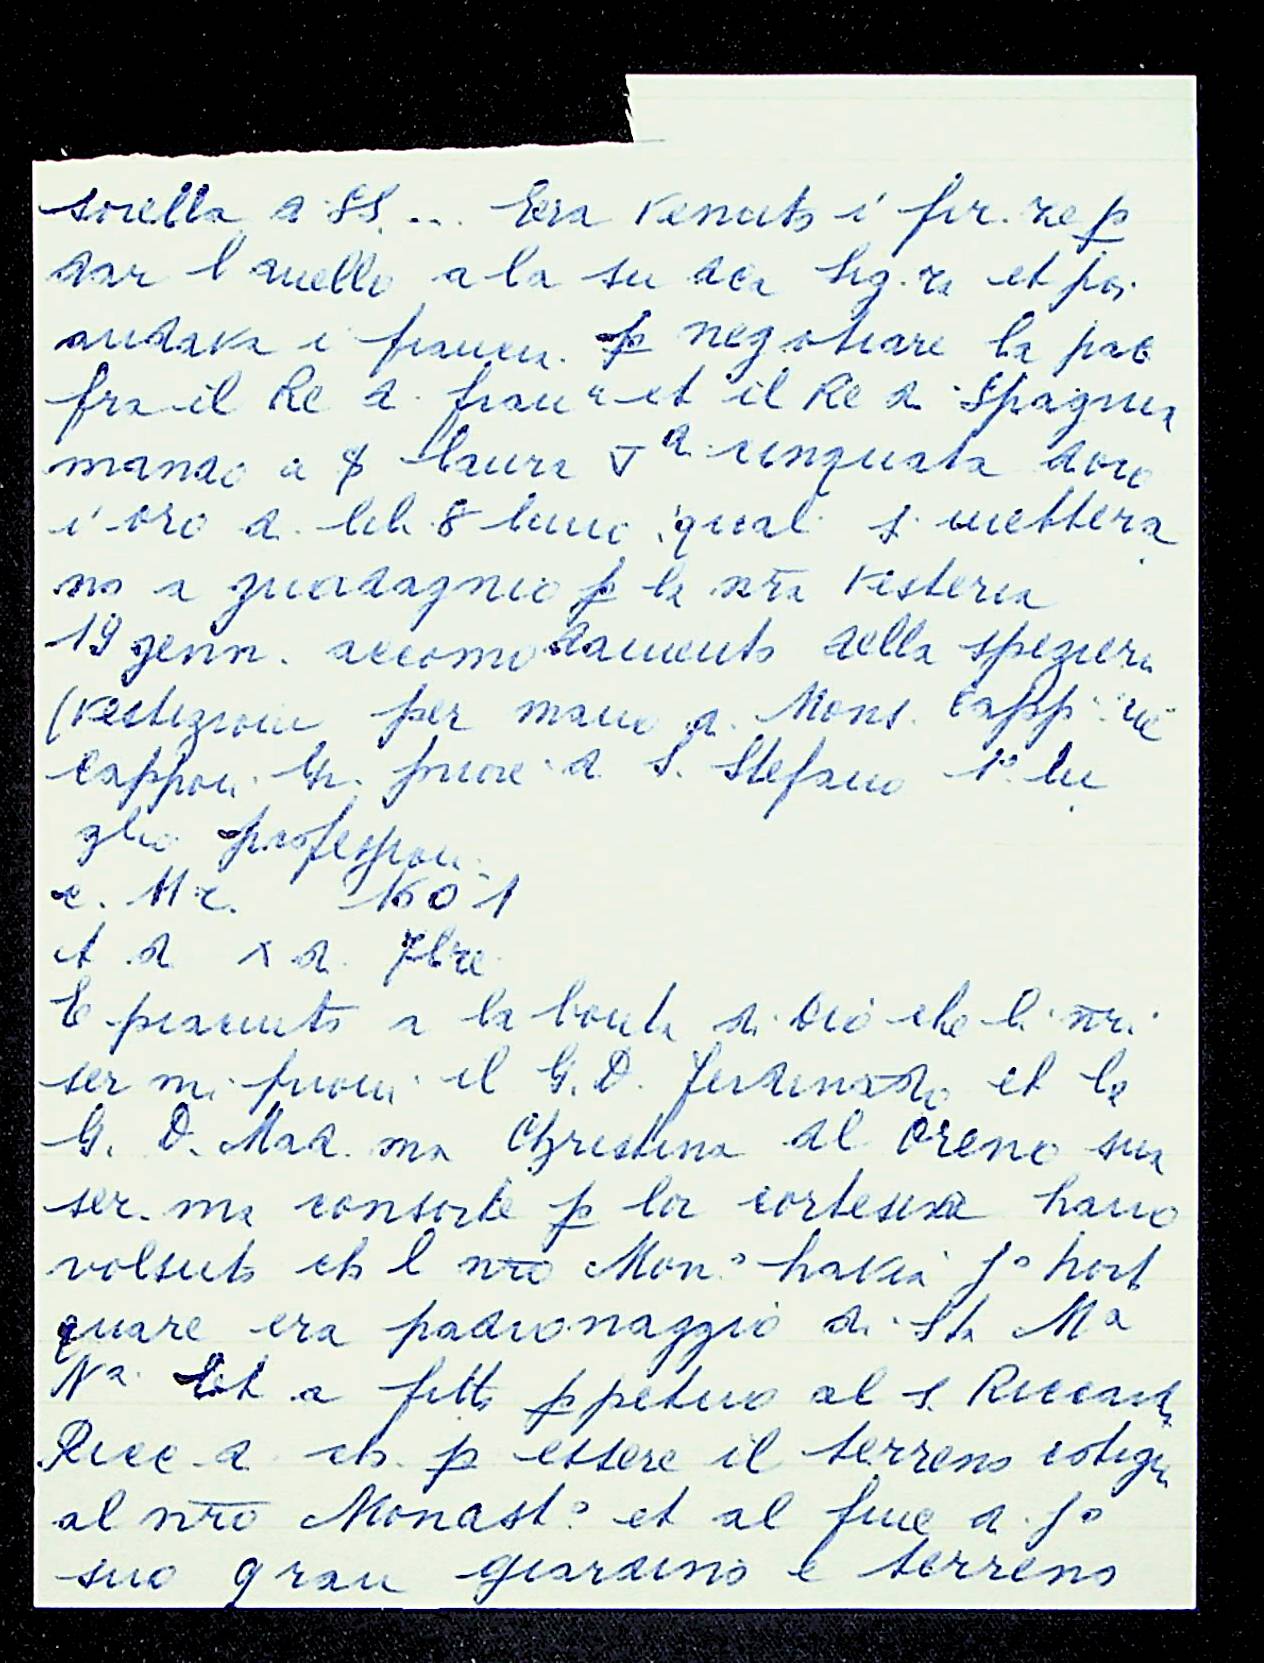 sorella di SS. ... Era venuto i' fir. ze p
dar l anello a la su dea Sig. ra et poi
andava i' francia p negotiare la pace
fra il Re di franc a et il Re di Spagnia
mando a laura cinquata doro
i' oro di lib. 8 luno quali si mettera
no a guadagnio p la nra vesteria
19 genn. accomodamento della spezieria
(vestizioni per mano di Mons. Capp. ne
Cappon. Gr. priore di S. Stefano 1º lu
glio professioni
c. 11 r. 1601
A di X di 7bre
E piaciuto a la bonta di Dio che li nri
ser mi proni il G. D. ferdinando et la
G. D. Mad. ma Christina al Oreno sua
ser. ma consorte p lor cortesia hano
volsuto ch l nro Mon.º havia sº hort
quare era padronaggio di Sta Ma
Na. Et a fitto ppetuo al s. Riccardo
Ricc di ch. p essere il terreno cotigu
al nro Monastº et al fine di sº
suo gran giardino e terreno